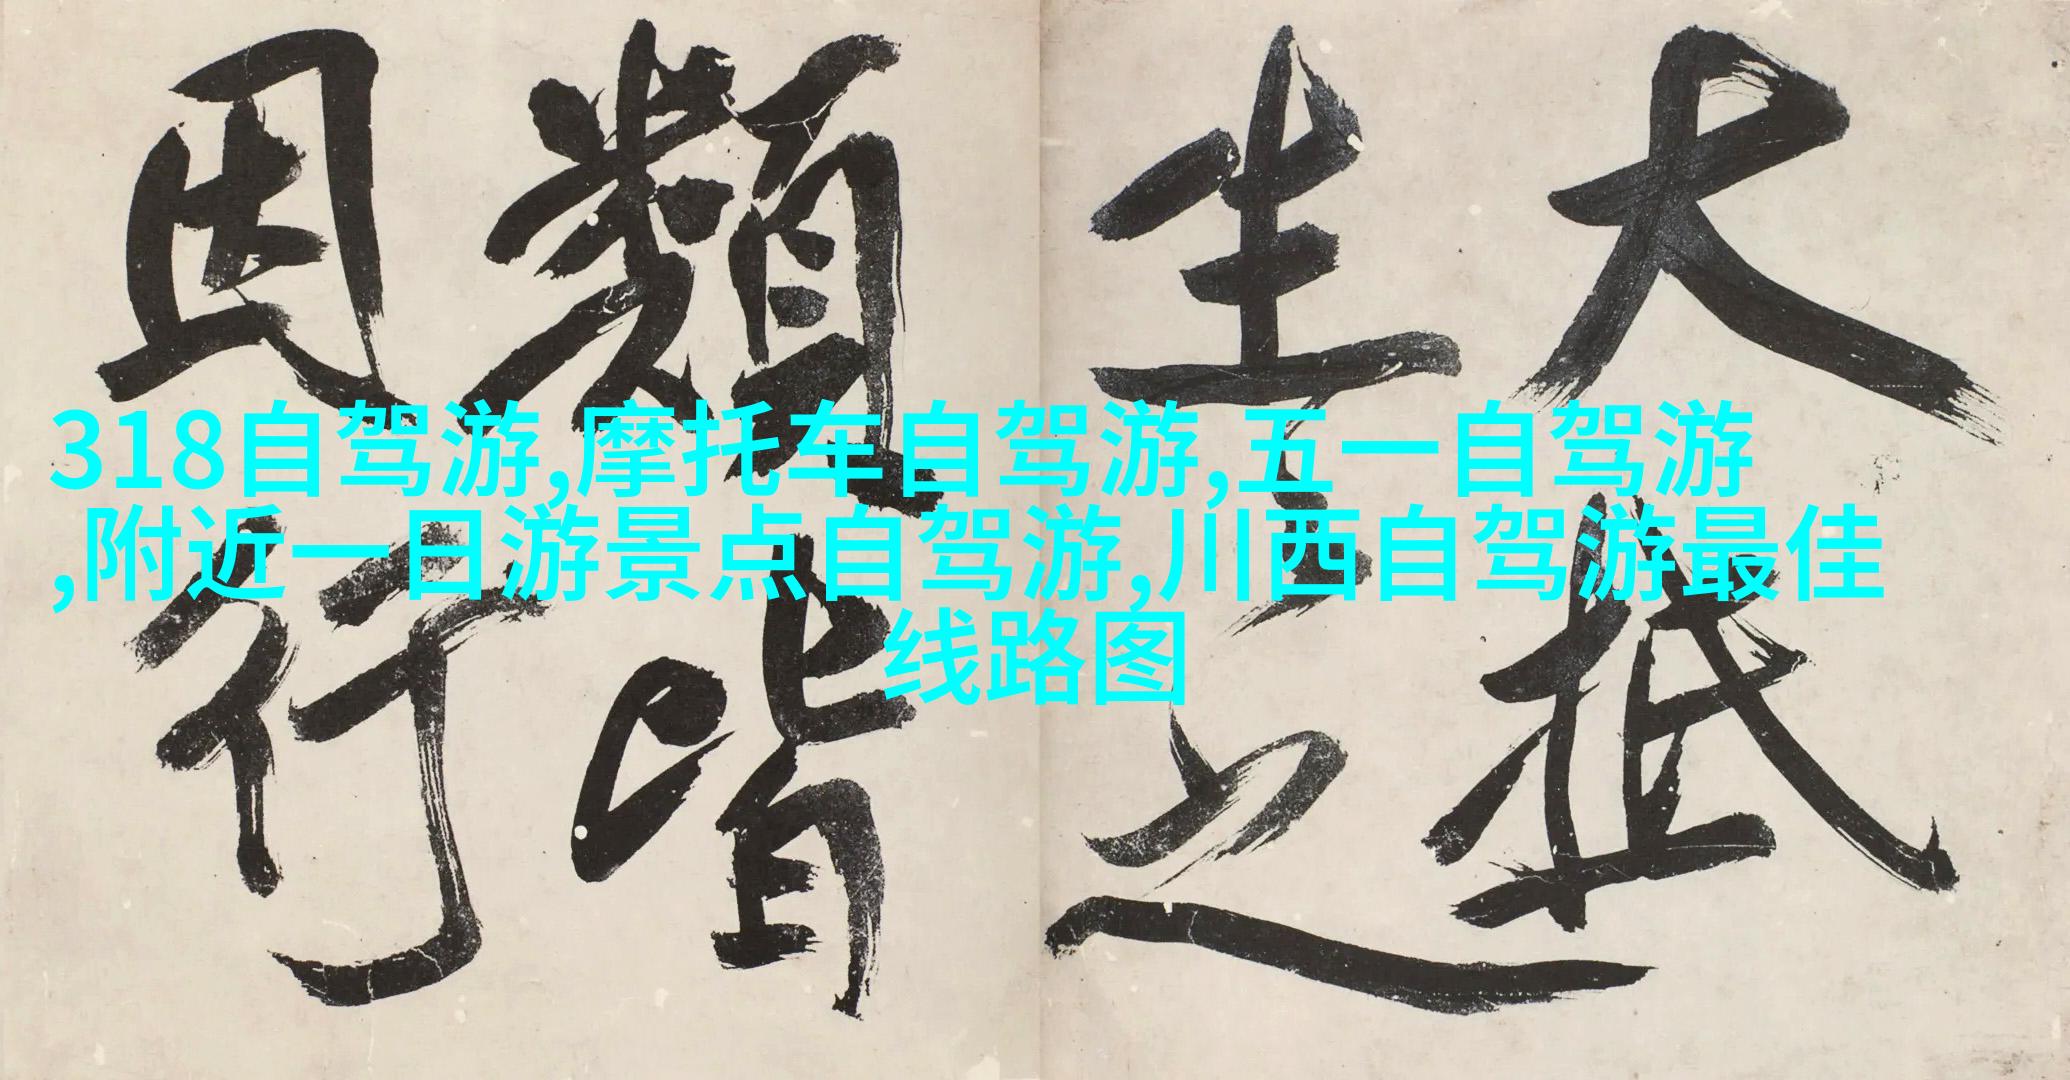 大抵
生之
類皆
因行
318自驾游,摩托车自驾游,五一自驾游
,附近一日游景点自驾游,川西自驾游最佳
线路图